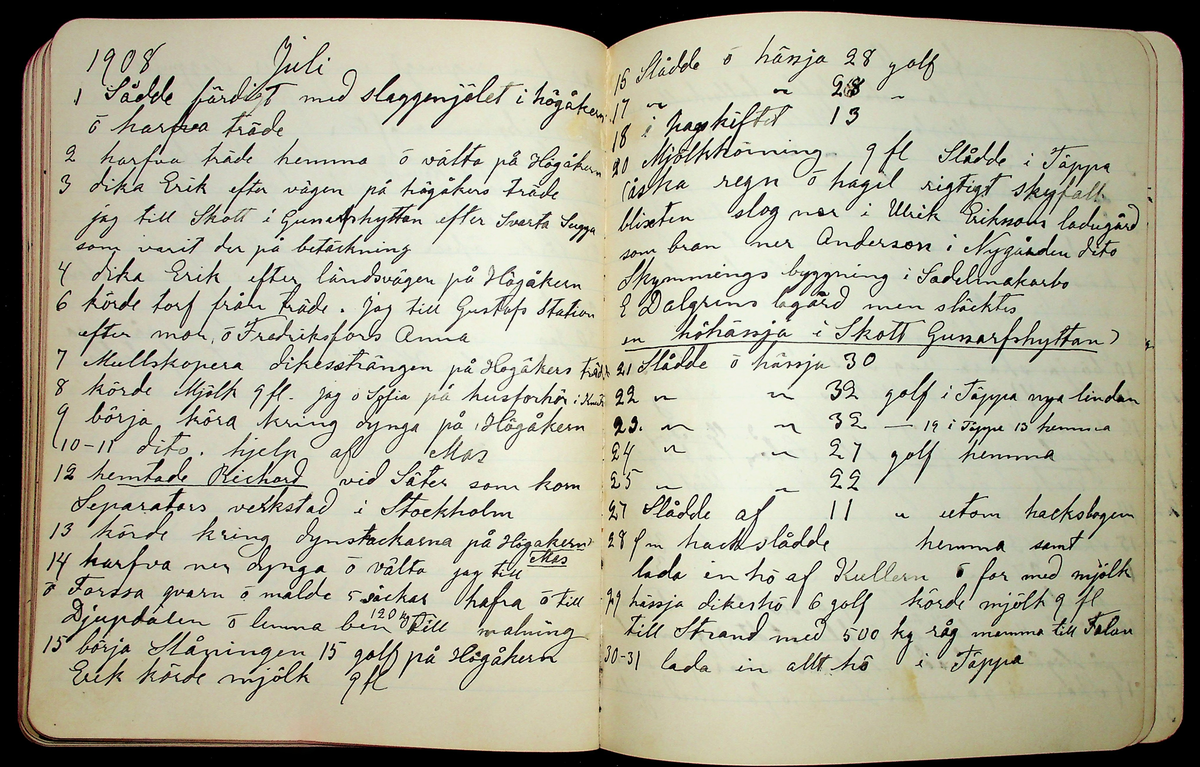 1908 Juli
1 Sådde färdigt med slaggmjölet i högåkern
ö harfva träde
2 harfva träde hemma ö välta på Högåkern
3 dika Erik efter vägen på högåkers träde
jag till Skott i Gunarfshyttan efter Svarta Sugga
som varit der på betäckning
4 dika Erik efter ländsvägen på Högåkern
6 körde torf från träde. Jag till Gustafs Station
efter mor, ö Fredriksfors Anna
7 Mullskopera dikessträngen på Högåkers träde
8 körde Mjölk 9 fl. jag ö Sofia på husförhör i
9 börja köra kring dynga på Högåkern
10-11 dito. hjelp af Mas
12 hemtade Richard vid Säter som kom
Separators verkstad i Stockholm
13 körde kring dynstackarna på Högåkern
14 harfva ner dynga ö välta jag till Mas
ö Forssa qvarn ö malde 5 säckar hafra ö till
Djupdalen ö lemna ben 120 kg till malning
15 börja Slåningen 15 golf på Högåkern
Erik körde mjölk 9 fl
15 Slådde ö hässja 28 golf
17 " " 28 "
18 " i hagskiftet 13
20 Mjölkkörning 9 fl Slådde i Täppa
(åska regn ö hagel rigtigt skyfall
blixten slog ner i Ulrik Eriksons ladugård
som bran ner Anderson i Nygården dito
Skymmings byggning i Sadelmakarbo
E Dalgrins lagård men släcktes
en höhässja i Skott Gunarfshyttan)
21 Slådde ö hässja 30
22 " " 32 golf i Täppa nya lindan
23. " " 32 — 19 i Täppe 13 hemma
24 " " 27 golf hemma
25 " " 22
27 Slådde af 11 " utom hackslagen
28 fm hackslådde hemma samt
lada in hö af Kullern ö for med mjölk
29 hässja dikeshö 6 golf körde mjölk 9 fl
till Strand med 500 kg råg mamma till Falun
30-31 lada in allt hö i Täppa